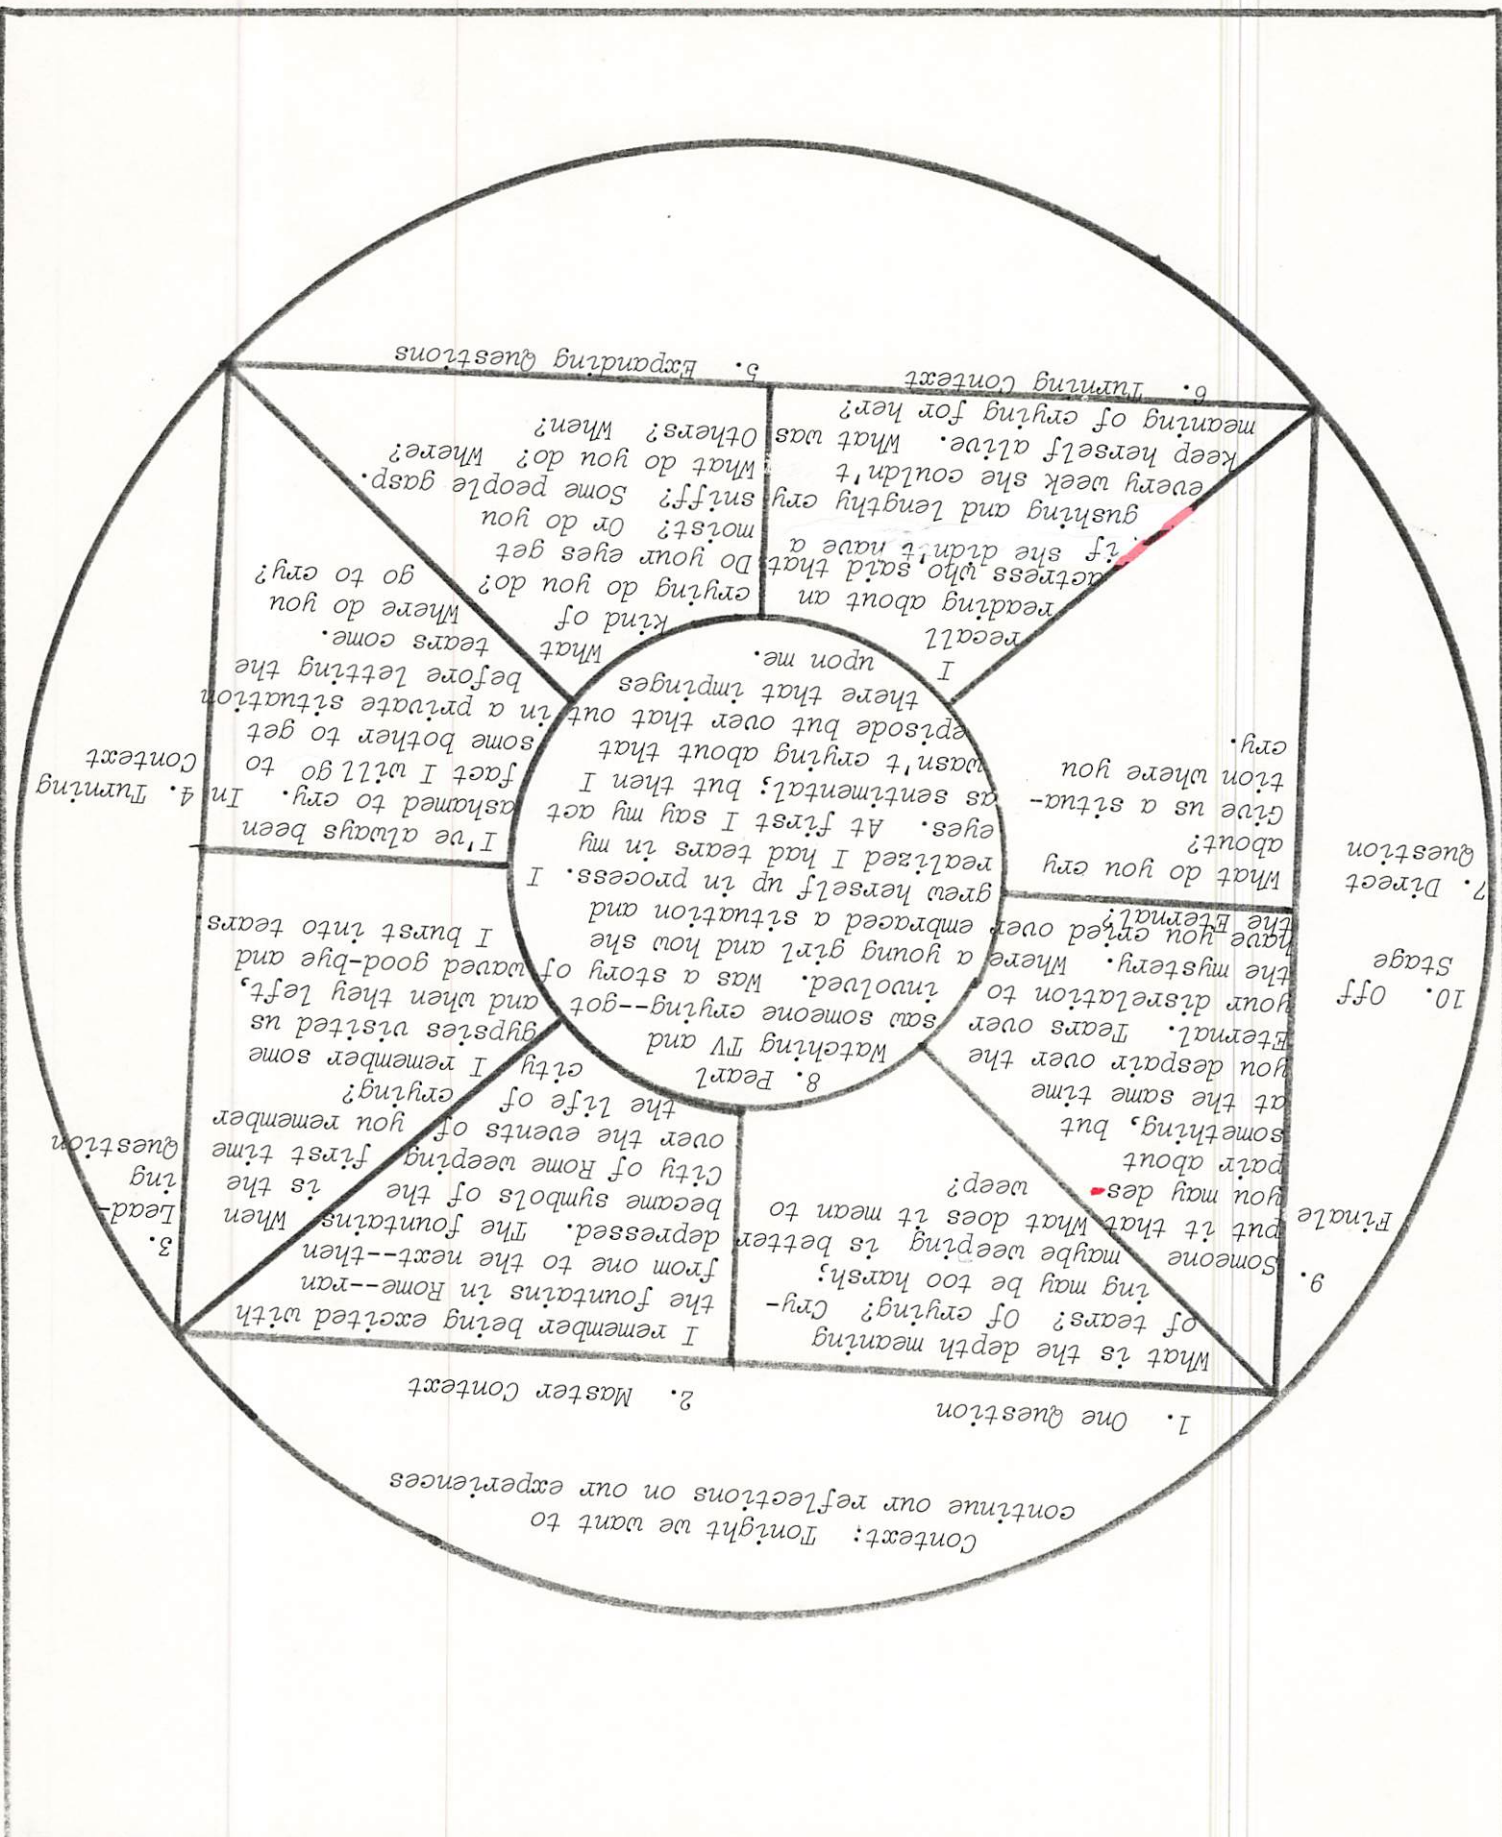 Context: Tonight we want to
continue our reflections on our experiences
1. One Question
What is the depth meaning
of tears? Of crying? Cry-
ing may be too harsh;
maybe weeping is better
What does it mean to
weep?
2. Master Context
I remember being excited with
the fountains in Rome--ran
from one to the next--then
depressed. The fountains
became symbols of the
City of Rome weeping
over the events of
the life of
city
3.
Lead-
ing
Question
When
is the
first time
you remember
crying?
I remember some
gypsies visited us
and when they left,
waved good-bye and
I burst into tears
4. Turning
Context
I've always been
ashamed to cry. In
fact I will go to
some bother to get
in a private situation
before letting the
tears come.
Where do you
go to cry?
5. Expanding Questions
What
kind of
crying do you do?
Do your eyes get
moist? Or do you
sniff? Some people gasp.
What do you do? Where?
Others? When?
6. Turning Context
I
recall
reading about an
actress who said that
if she didn't have a
gushing and lengthy cry
every week she couldn't
keep herself alive. What was
meaning of crying for her?
7. Direct
Question
What do you cry
about?
Give us a situa-
tion where you
cry.
8. Pearl
Watching TV and
saw someone crying--got
involved. Was a story of
a young girl and how she
embraced a situation and
grew herself up in process. I
realized I had tears in my
eyes. At first I say my act
as sentimental; but then I
wasn't crying about that
episode but over that out
there that impinges
upon me.
9.
Finale
Someone
put it that
you may des-
pair about
something, but
at the same time
you despair over the
Eternal. Tears over
your disrelation to
the mystery. Where
have you cried over
the Eternal?
10. Off
Stage